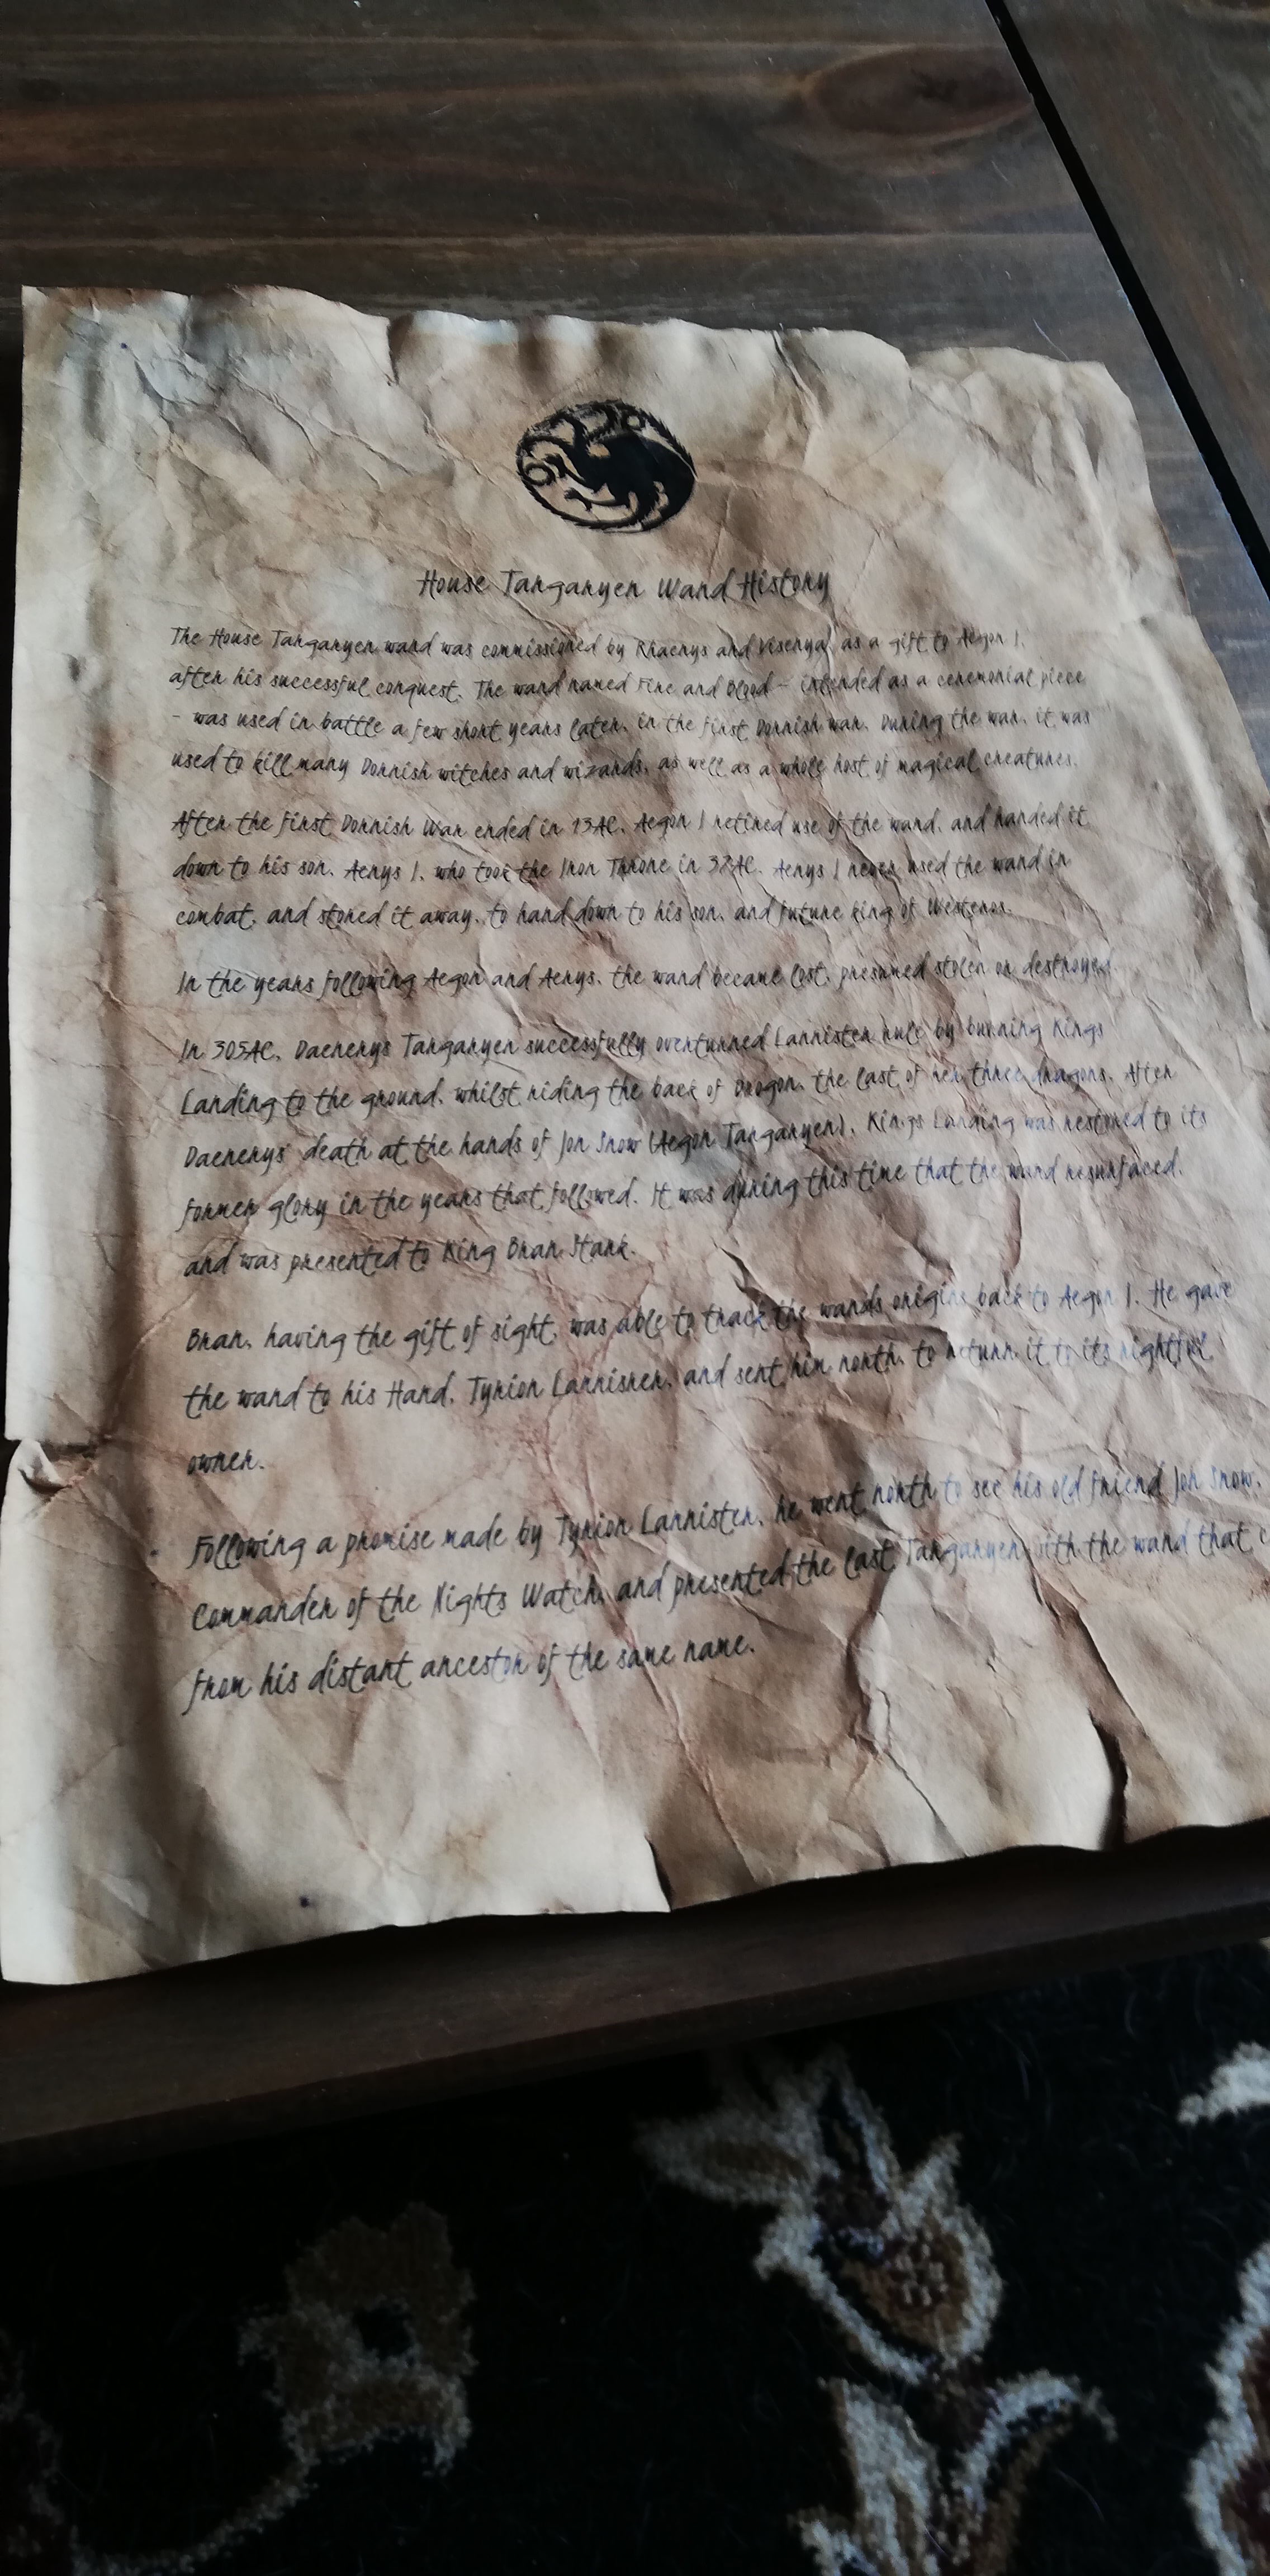 House Targaryen Wand History
The House Targaryen wand was commissioned by Rhaenys and Visenya, as a gift to Aegon I,
after his successful conquest. The wand named Fire and Blood - intended as a ceremonial piece
- was used in battle a few short years later, in the first Dornish war. During the war, it was
used to kill many Dornish witches and wizards, as well as a whole host of magical creatures.
After the first Dornish War ended in 13AC, Aegon I retired use of the wand, and handed it
down to his son, Aenys I, who took the Iron Throne in 37AC. Aenys I never used the wand in
combat, and stored it away, to hand down to his son, and future king of Westeros.
In the years following Aegon and Aenys, the wand became lost, presumed stolen or destroyed.
In 305AC, Daenerys Targaryen successfully overturned Lannister rule by burning Kings
Landing to the ground, whilst riding the back of Drogon, the last of her three dragons. After
Daenerys' death at the hands of Jon Snow (Aegon Targaryen), Kings Landing was restored to its
former glory in the years that followed. It was during this time that the wand resurfaced,
and was presented to King Bran Stark.
Bran, having the gift of sight, was able to track the wands origins back to Aegon I. He gave
the wand to his Hand, Tyrion Lannisrer, and sent him north, to return it to its rightful
owner.
Following a promise made by Tyrion Lannister, he went north to see his old friend Jon Snow,
Commander of the Nights Watch, and presented the last Targaryen with the wand that
from his distant ancestor of the same name.